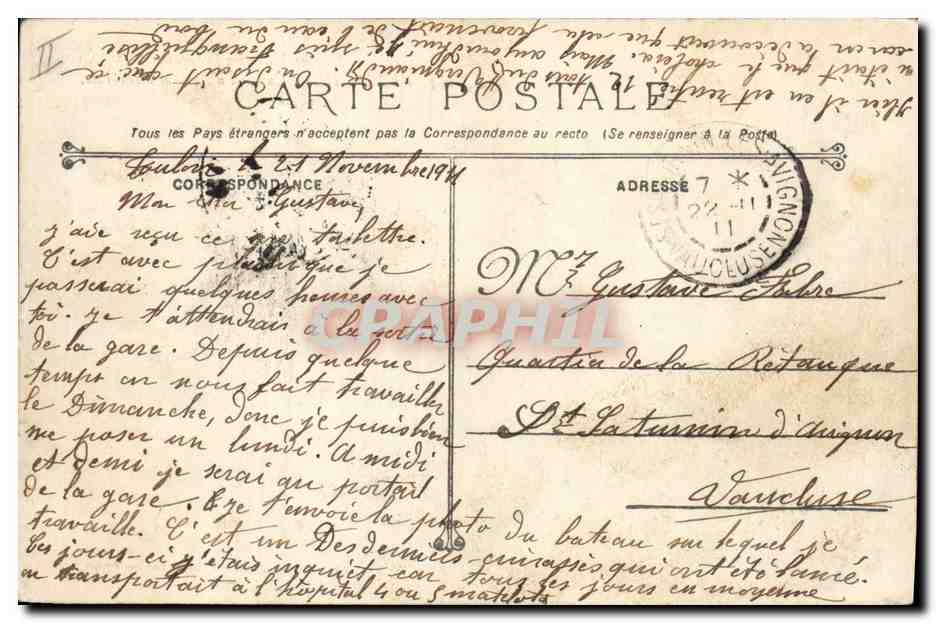 II
Hier il en est rentré 12 tous dirigés On disait que ce
n'était que le choléra. Mais aujourd'hui je suis tranquillisé
car on a découvert que cela provenait de l'eau du bord
CARTE POSTALE
Tous les Pays étrangers n'acceptent pas la Correspondance au recto (Se renseigner à la Poste)
CORRESPONDANCE
ADRESSE
Toulon le 21 Novembre 1911
Mon cher Gustave,
J'ai reçu ce ta lettre.
C'est avec plaisir que je
passerai quelques heures avec
toi. Je t'attendrais à la sortie
de la gare. Depuis quelque
temps on nous fait travailler
le Dimanche, donc je puis bien
me poser un lundi. A midi
et demi je serai au portail
de la gare. Je t'envoie la photo du bateau sur lequel je
travaille. C'est un Des derniers cuirassés qui ont été lancé.
Ces jours-ci j'étais inquiet car tous les jours en moyenne
on transportait à l'hopital 4 ou 5 matelots
7 *
22 -11
11
AVIGNON
VAUCLUSE
Mr Gustave Fabre
Quartier de la Rétanque
St Saturnin d'Avignon
Vaucluse
CPAPHIL